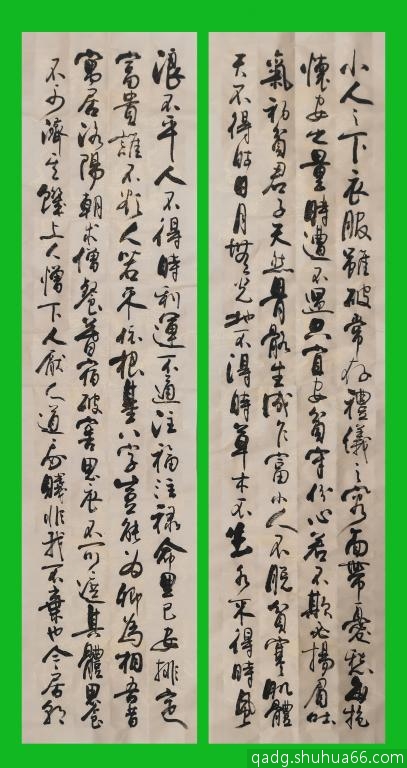 小人之下衣服雖破常存禮儀之容面帶憂愁每抱
懷安之量時遭不遇只宜安貧守份心若不欺必揚眉吐
氣初貧君子天然骨骼生成乍富小人不脫貧寒肌體
天不得時日月無光地不得時草木不生水不得時風
浪不平人不得時利運不通注福注祿命里已安排定
富貴誰不欲人若不依根基八字豈能為卿為相吾昔
寓居洛陽朝求僧餐暮宿破窖思衣不可遮其體思餐
不可濟其饑上人憎下人厭人道我賤非我不棄也今居朝
qadg.shuhua66.com